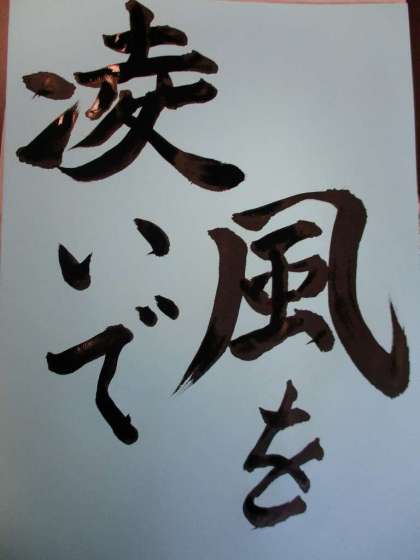 風を
凌いで